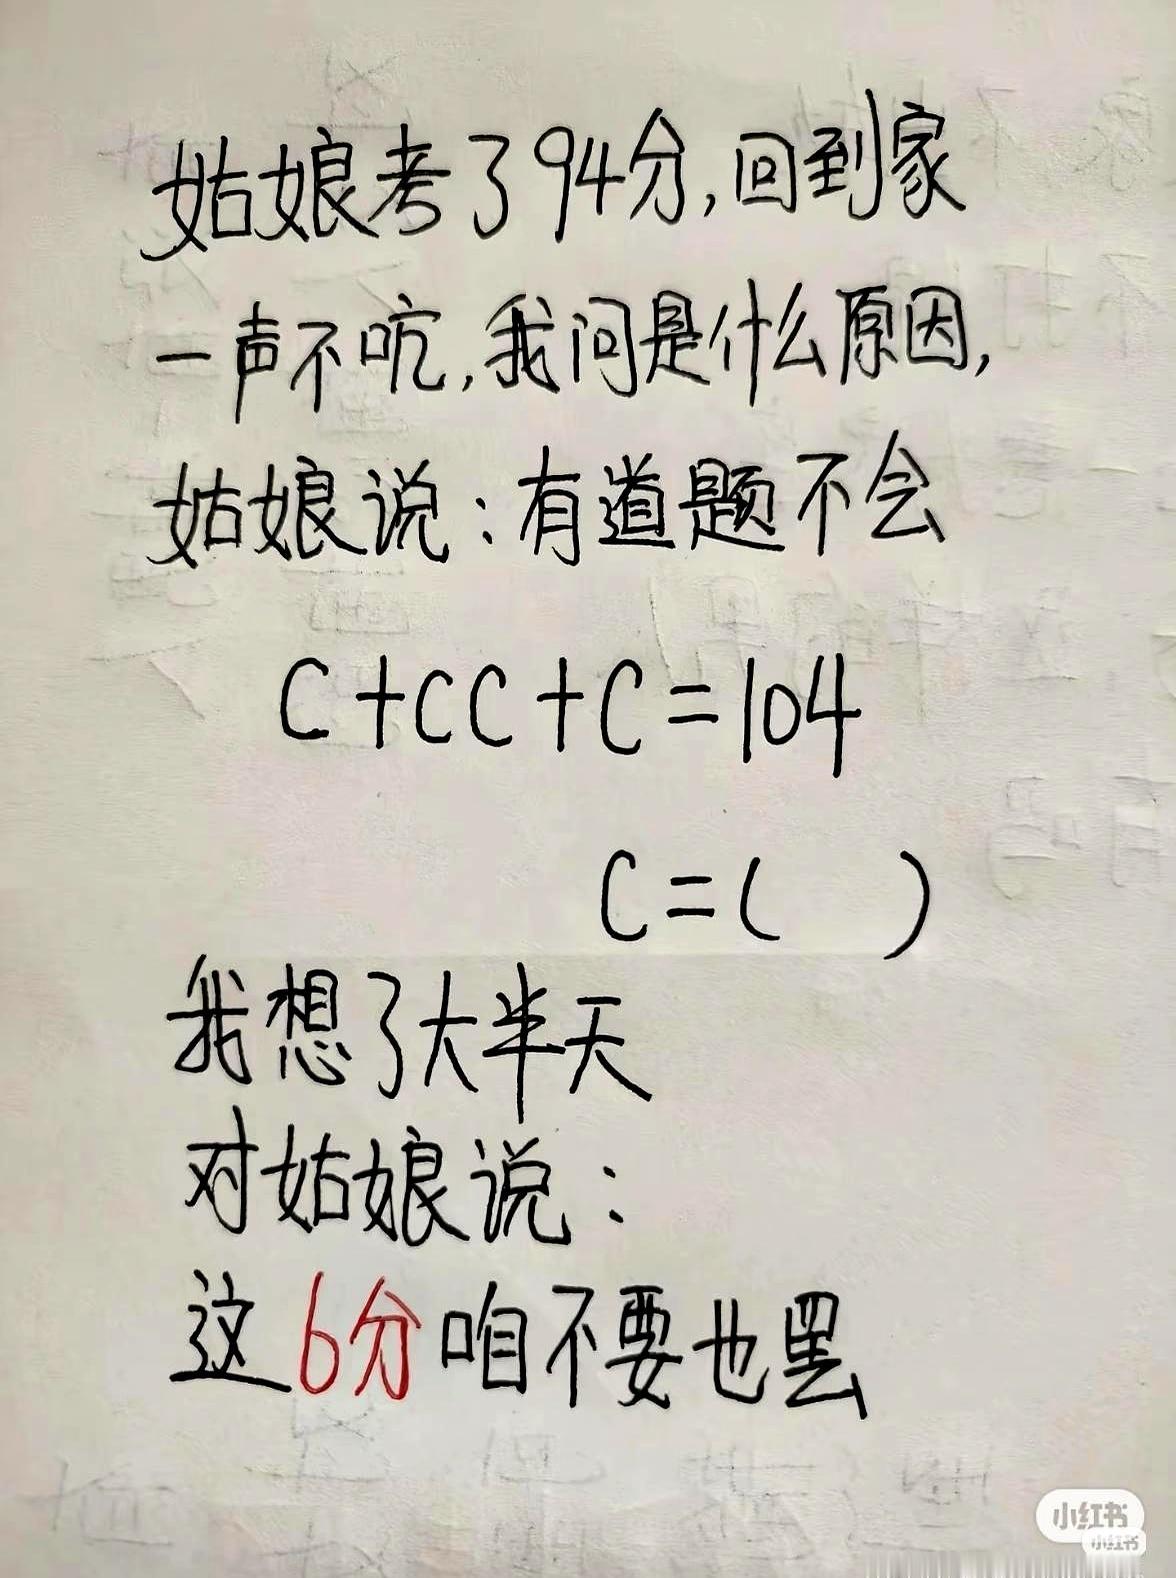 姑娘考了94分,回到家
一声不吭,我问是什么原因,
姑娘说:有道题不会
C+CC+C=104
C=( )
我想了大半天
对姑娘说:
这6分咱不要也罢
小红书
小红书